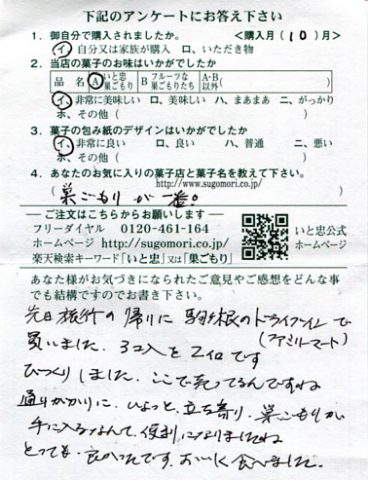 下記のアンケートにお答え下さい
1. 御自分で購入されましたか。 <購入月(10)月>
イ、自分又は家族が購入 ロ、いただき物
2. 当店の菓子のお味はいかがでしたか
品 名 A いと忠巣ごもり B フルーツな巣ごもりたち A・B以外( )
イ、非常に美味しい ロ、美味しい ハ、まあまあ ニ、がっかり
ホ、その他( )
3. 菓子の包み紙のデザインはいかがでしたか
イ、非常に良い ロ、良い ハ、普通 ニ、悪い
ホ、その他( )
4. あなたのお気に入りの菓子店と菓子名を教えて下さい。
http://www.sugomori.co.jp/
(巣ごもりが一番。)
ご注文はこちらからお願いします
フリーダイヤル 0120-461-164
ホームページ http://sugomori.co.jp/
楽天検索キーワード「いと忠」又は「巣ごもり」
いと忠公式
ホームページ
あなた様がお気づきになられたご意見やご感想をどんな事
でも結構ですのでお書き下さい。
先日旅行の帰りに駒ヶ根のドライブインで
(ファミリーマート)
買いました。3コ入を2コです
びっくりしました。ここで売ってるんですね
通りがかりに、ひょっと、立ち寄り、巣ごもりが
手に入るなんて、便利になりましたね
とっても、良かったです。おいしく食べました。